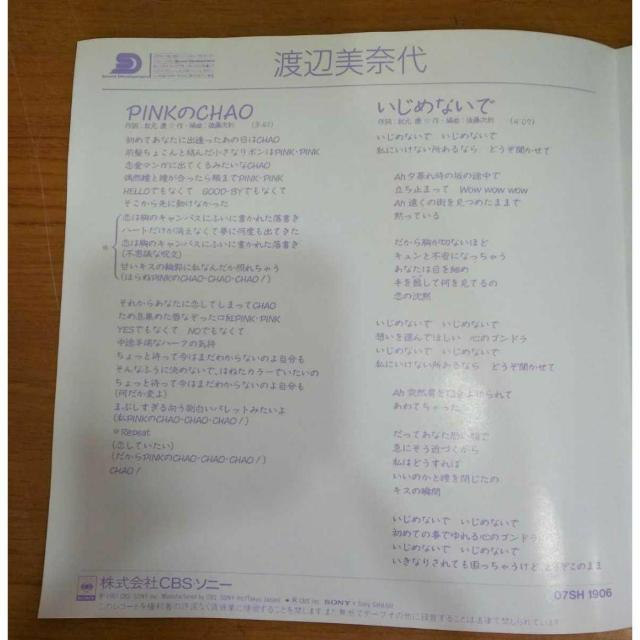 渡辺美奈代
PINKのCHAO
作詞:秋元 康☆作・編曲:後藤次利
初めてあなたに出逢ったあの日はCHAO
前髪ちょこんと結んだ小さなリボンはPINK・PINK
恋愛マンガに出てくるみたいなCHAO
偶然瞳と瞳が合ったら頬までPINK・PINK
HELLOでもなくて GOOD-BYでもなくて
そこから先に動けなかった
※
恋は胸のキャンバスにふいに書かれた落書き
ハートだけが消えなくて夢に何度も出てきた
恋は胸のキャンバスにふいに書かれた落書き
(不思議な呪文)
甘いキスの輪郭に私なんだか照れちゃう
(ほらねPINKのCHAO・CHAO・CHAO!)
それからあなたに恋してしまってCHAO
ため息集めた唇なぞった口紅PINK・PINK
YESでもなくて NOでもなくて
中途半端なハーフの気持
ちょっと待って今はまだわからないのよ自分も
そんなふうに決めないで、はねたカラーでいたいの
ちょっと待って今はまだわからないのよ自分も
(何だか変よ)
まぶしすぎる向う側白いパレットみたいよ
(私PINKのCHAO・CHAO・CHAO!)
※Repeat
(恋していたい)
(だからPINKのCHAO・CHAO・CHAO!)
CHAO!
いじめないで
作詞:秋元 康☆作・編曲:後藤次利
(4:07)
いじめないで いじめないで
私にいけない所あるなら どうぞ聞かせて
Ah夕暮れ時の坂の途中で
立ち止まって Wow wow wow
Ah 遠くの街を見つめたままで
黙っている
だから胸が切ないほど
キュンと不安になっちゃう
あなたは目を細め
手を翳して何を見てるの
恋の沈黙
いじめないで いじめないで
想いを運んでほしい 心のゴンドラ
いじめないで いじめないで
私にいけない所あるなら どうぞ聞かせて
Ah 突然肩を
られて
あわてちゃった
だってあなた
で
急にそう近づくから
私はどうすれば
いいのかと瞳を閉じたの
キスの瞬間
いじめないで いじめないで
初めての事でゆれる心のゴンドラ
いじめないで いじめないで
いきなりされても困っちゃうけど、どうぞこのまま
SONY 株式会社CBS・ソニー
07SH 1906